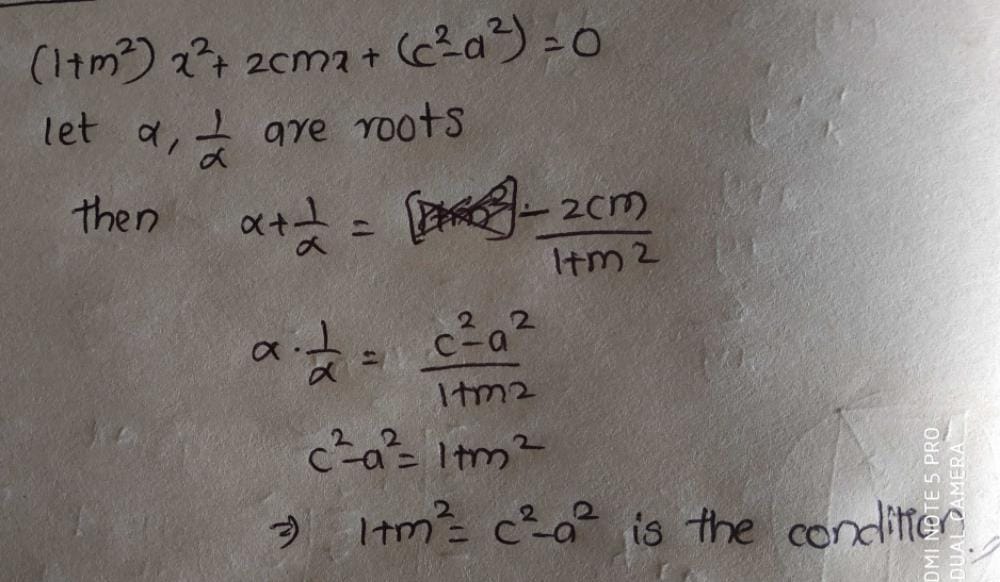 (1+m²) x² + 2cmx + (c²-a²) = 0
let α, 1/α are roots
then α + 1/α = - 2cm/1+m²
α · 1/α = c²-a²/1+m2
c²-a² = 1+m²
⇒ 1+m² = c²-a² is the condition.
DMI NOTE 5 PRO
DUAL CAMERA